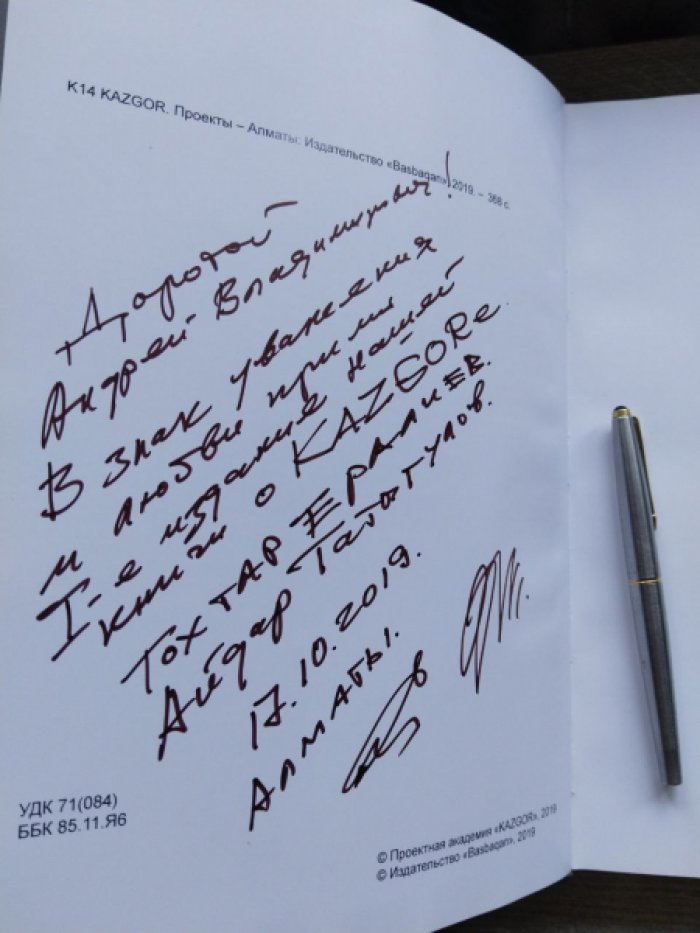 K14 KAZGOR. Проекты – Алматы: Издательство «Basbaqan», 2019. – 368 с.
Дорогой
Андрей Владимирович!
В знак уважения
и любви прими
I-е издание нашей
книги о KAZGORе.
Тохтар Ералиев.
Айдар Татыгулов.
17.10.2019.
Алматы.
УДК 71(084)
ББК 85.11.Я6
© Проектная академия «KAZGOR», 2019
© Издательство «Basbaqan», 2019